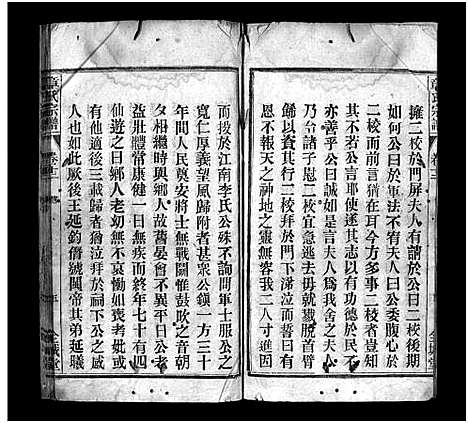 章氏宗譜
卷十二
全城堂
擁二校於門屏夫人有謂於公曰二校後期
如何公曰於軍法不宥夫人曰公委腹心於
二校而前言猶在耳今方多事二校者豈知
其不若公言耶使遂其志以有功德於民不
亦善乎公曰誠如是言夫人爲我舍之夫人
乃令諸子慰二校宜急逃去毋試鐵鑕首臂
歸以資其行二校拜於門下涕泣而誓曰有
恩不報天之神地之靈無容我二人寸進因
而投於江南李氏公殊不詢問軍士服公之
寬仁厚義望風歸附者甚衆公鎮一方三十
年間人民奠安將士無戰鬬惟鼓吹之音朝
夕相繼時與鄉人故舊晏會不異平日公老
益壯體常康健一日無疾而終年七十有四
仙遊之日鄉人老幼無不哀慟如喪考妣或
有他適後三載歸者猶泣拜於祠下公之感
人也如此厥後王延鈞僭號閩帝其弟延曦
章氏宗譜
卷十二
全城堂